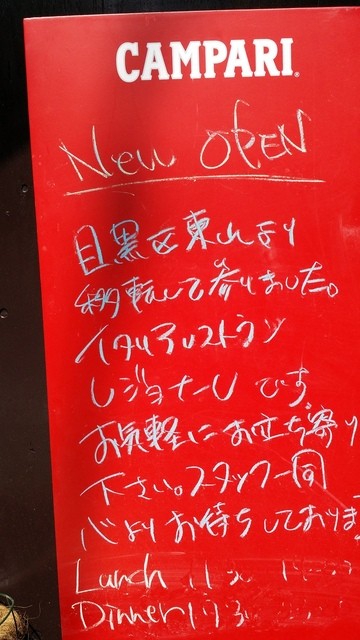 CAMPARI
New OPEN
目黒区東山より
移転して参りました。
イタリアレストラン
レジョナーレです。
お気軽にお立ち寄り
下さい。スタッフ一同
心よりお待ちしておりま
Lunch
Dinner